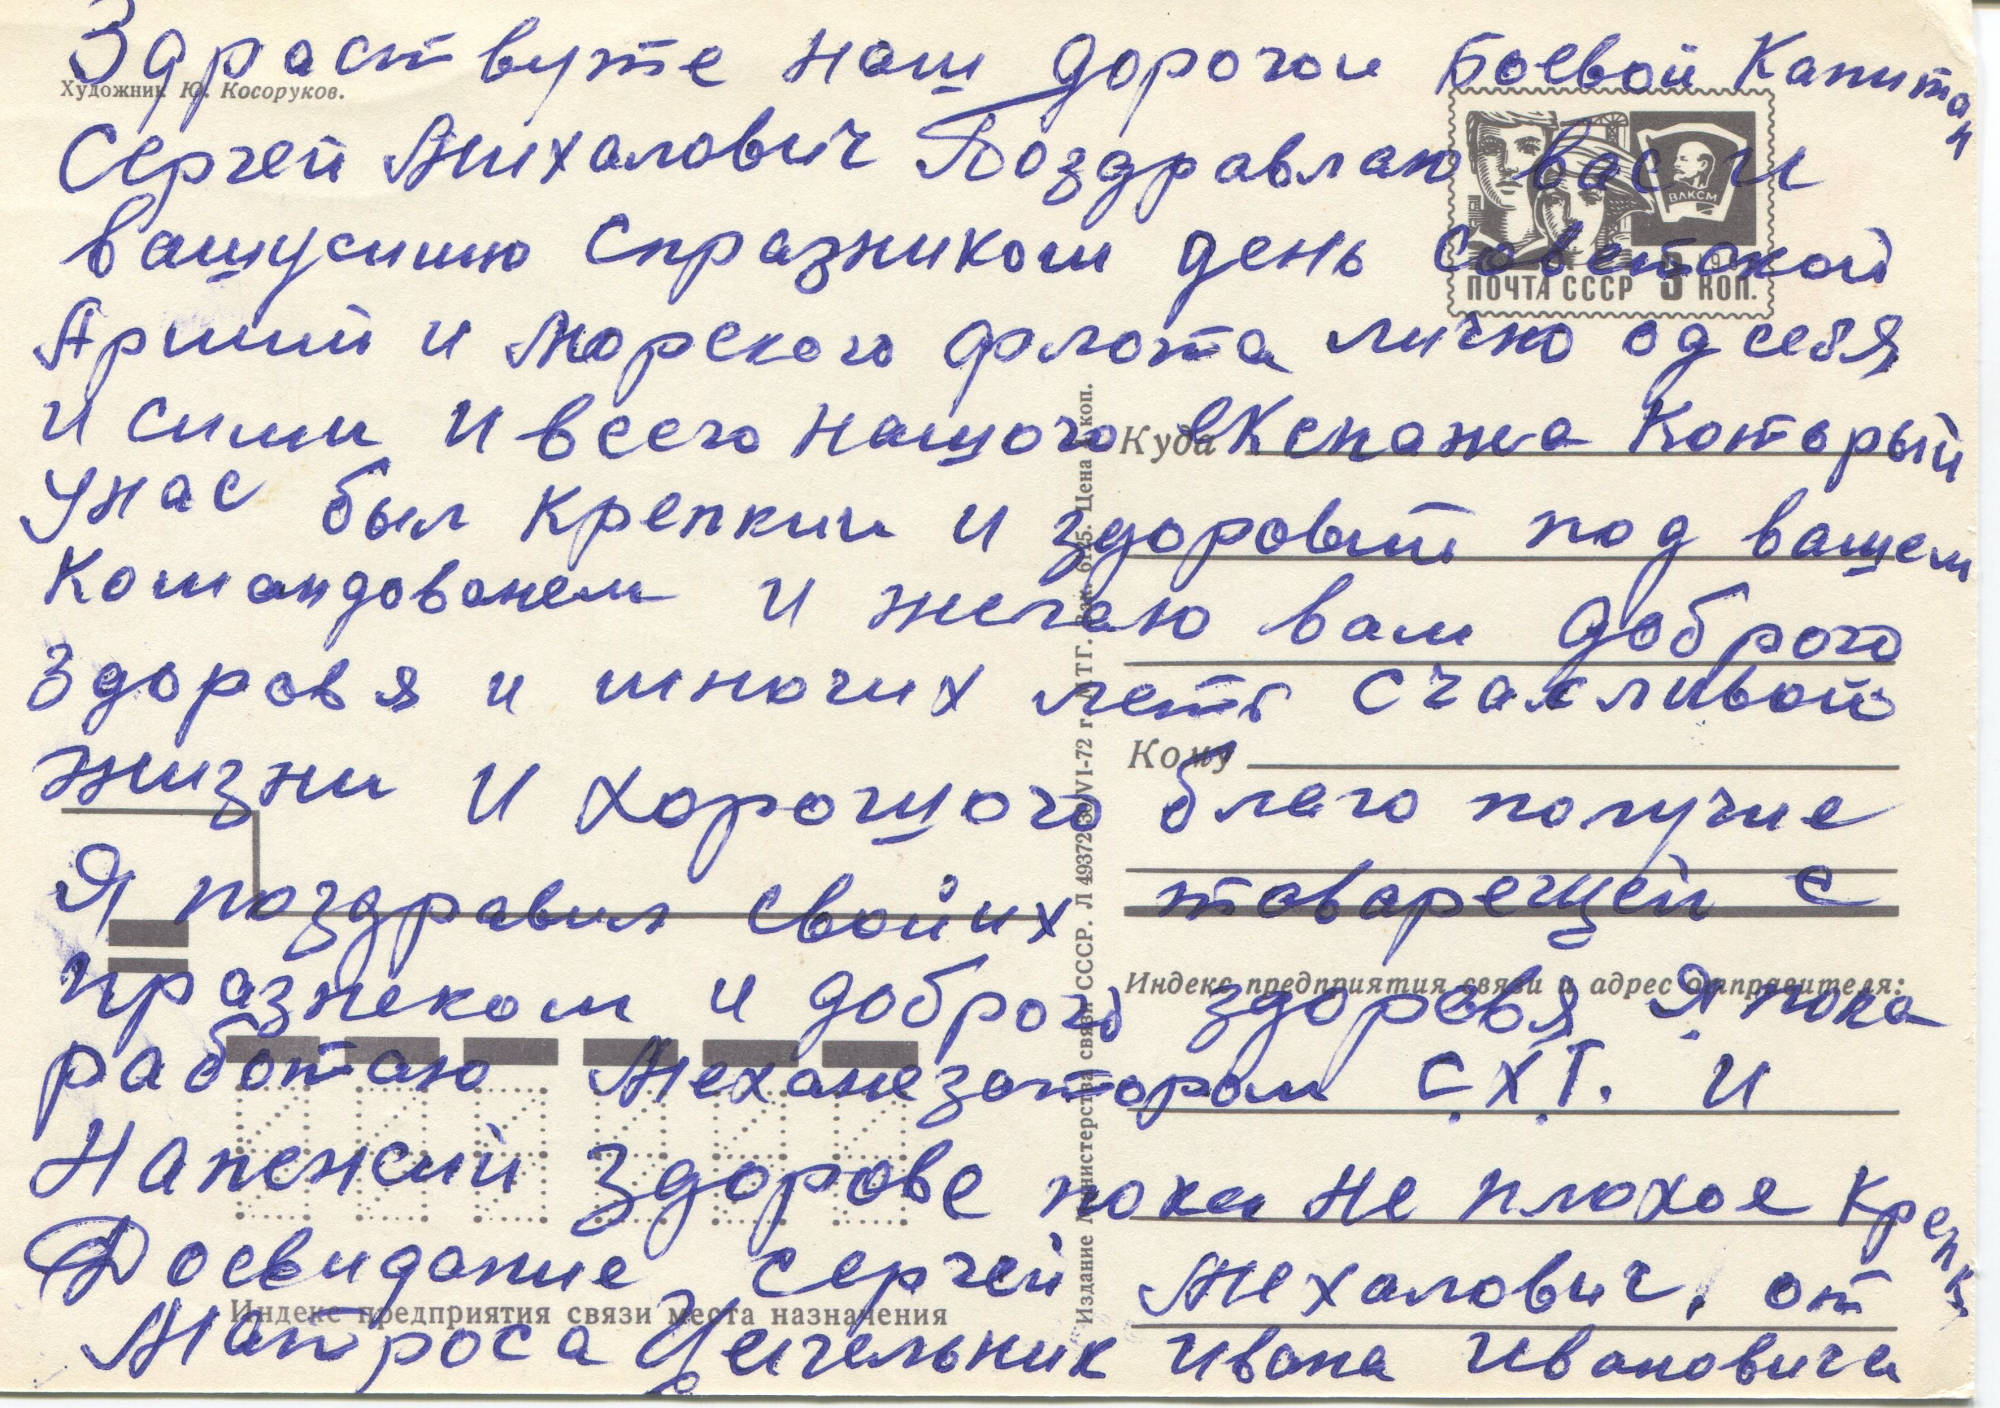 Здраствуте наш дорогои Боевой Капитан
Художник Ю. Косоруков.
Сергей Михалович Поздравлаю вас и
вашу симю спразником день Советской
Армий и Морского флота лично од себя
и сими и всего нашого екепажа Который
Унас был Крепкии и здоровый под вашем
Командованем и желаю вам доброго
здоровя и многих лет счасливой
жизни и хорошого благо получие
Я поздравил свойих товарещей с
празнеком и доброго здоровя Я пока
работаю Механезатором С.Х.Т. и
На пенсии здорове пока не плохое крепк.
Досвидание Сергей Мехалович, от
Матроса Ивана Ивановича
ВЛКСМ
ПОЧТА СССР 3 КОП.
Куда
Кому
Индекс предприятия связи и адрес отправителя:
Индекс предприятия связи места назначения
Издание Министерства связи СССР. Л 49372 VI-72 г. МТГ. Зак. Цена коп.